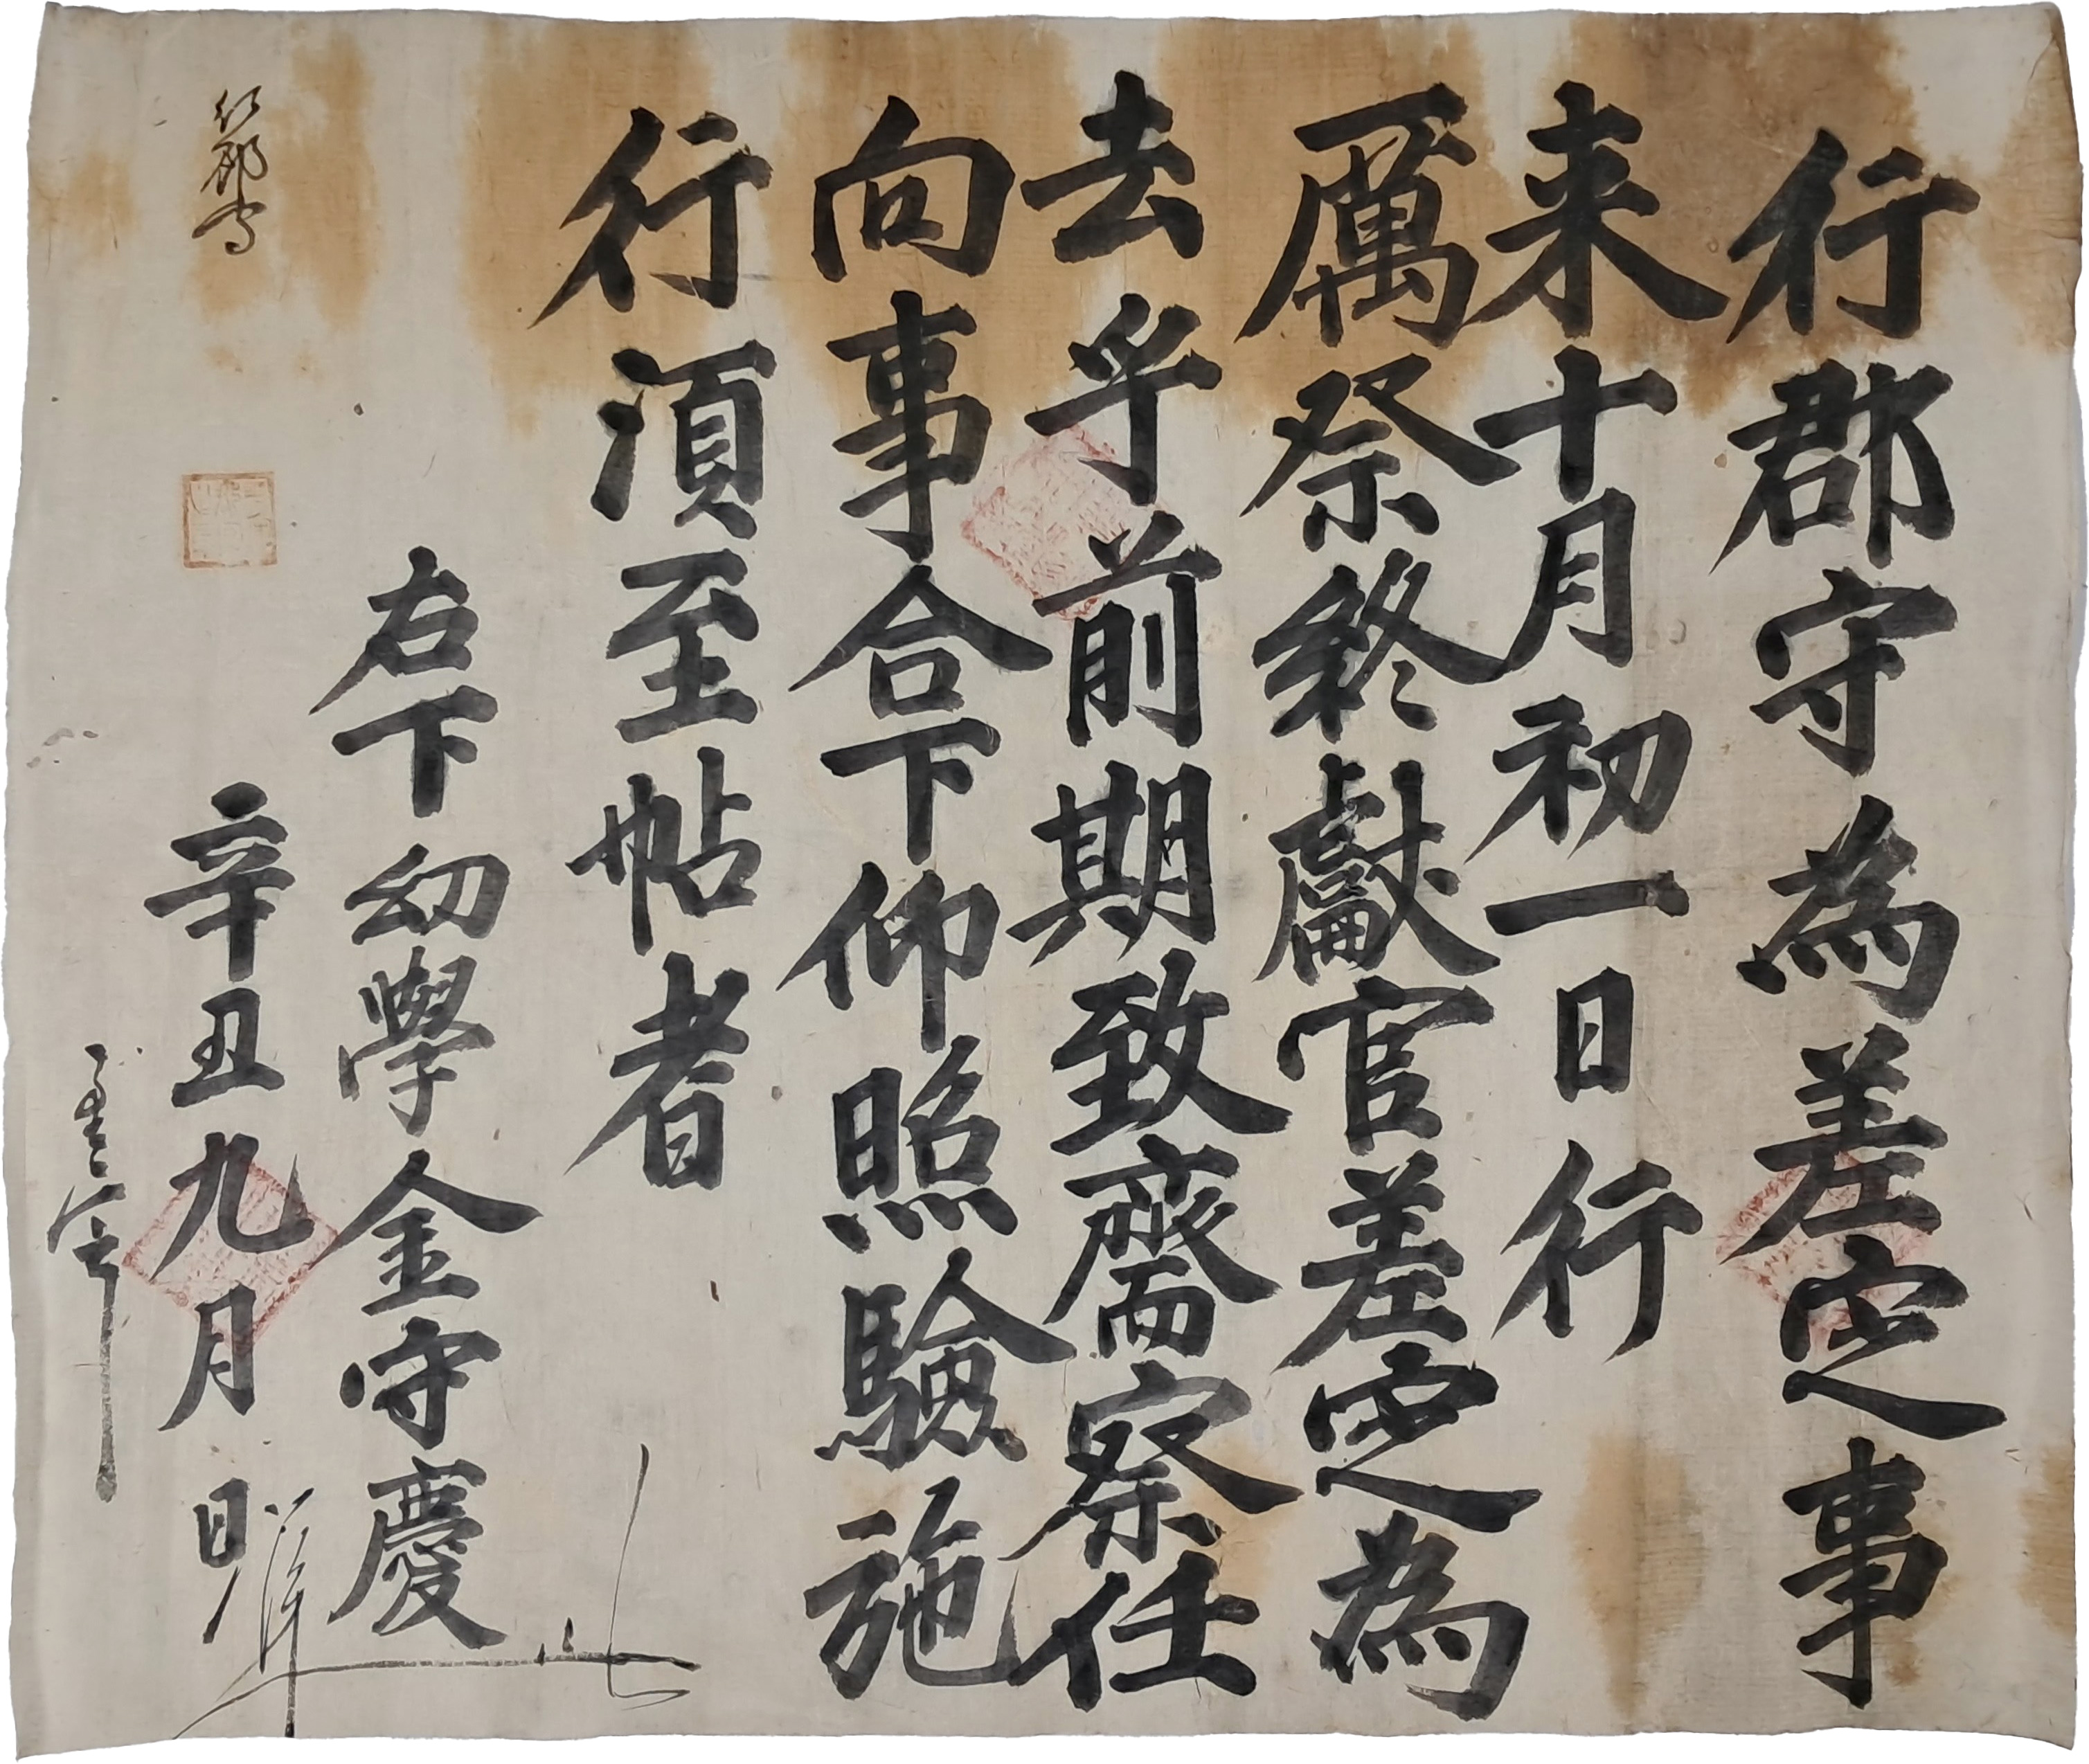 行郡守為差定事
来十月初一日行
厲祭終獻官差定為
去乎前期致齋察任
向事合下仰照驗施
行須至帖者
右下幼學金守慶
辛丑九月日
行郡守